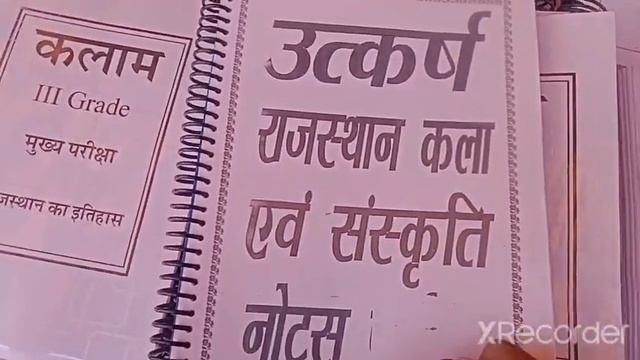 कलाम
III Grade
मुख्य परीक्षा
जस्थान का इतिहास
उत्कर्ष
राजस्थान कला
एवं संस्कृति
नोट्स
XRecorder